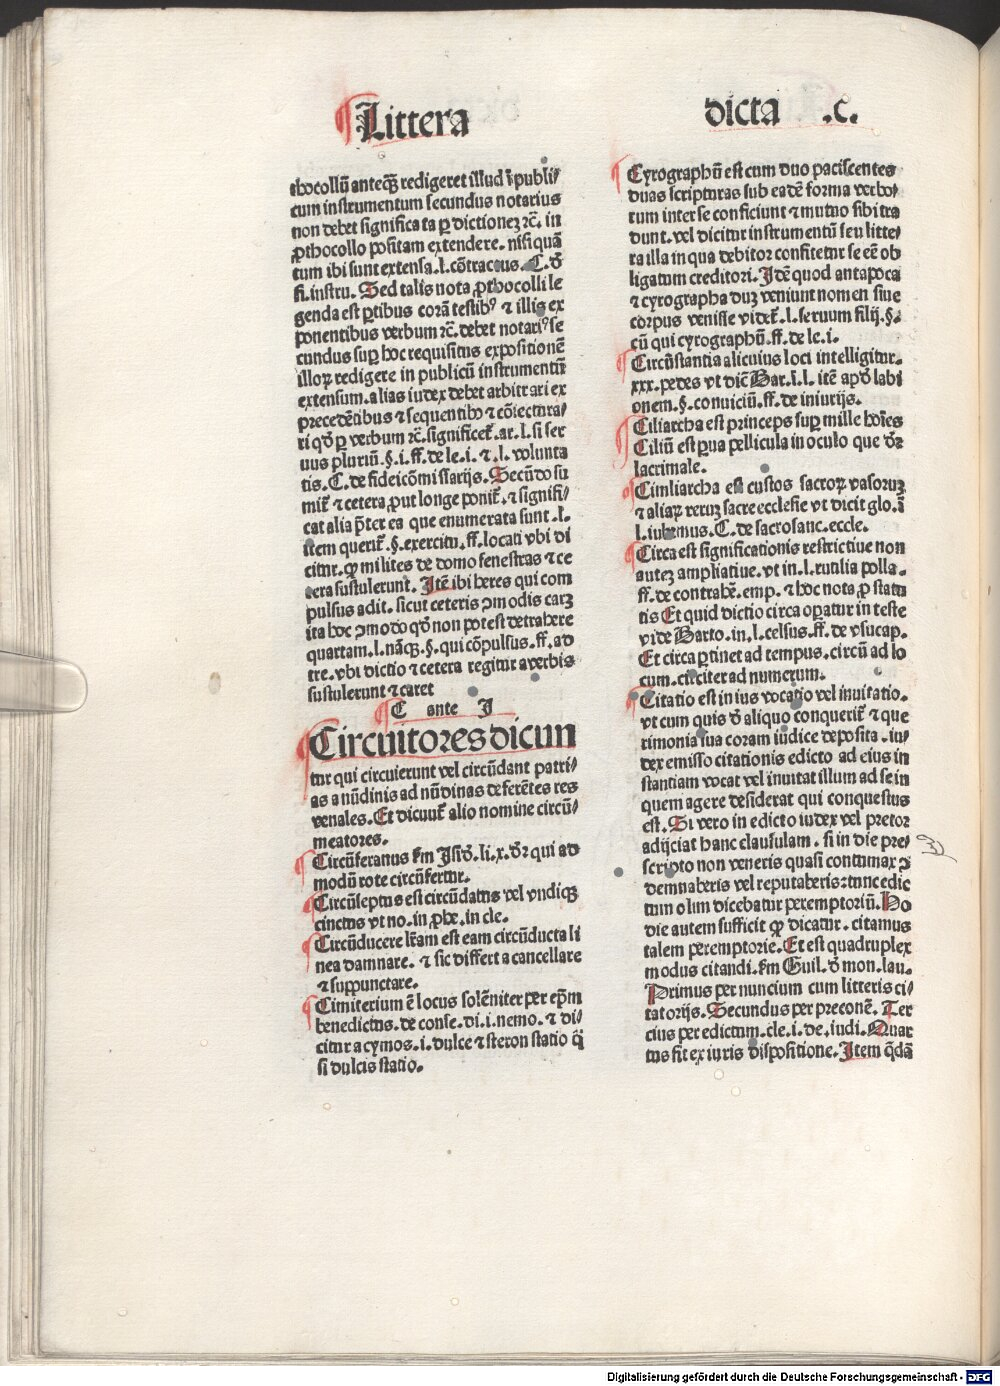 Littera
dicta .c.
thocollū anteq̄ȝ redigeret illud ī publi⸗
cum instrumentum secundus notarius
non debet significata ꝑ dictioneȝ ꝛc̄. in
ꝓthocollo positam extendere. nisi quā
tum ibi sunt extensa .l. cōtractus. C. d̄
fi. instru. Sed talis nota ꝓthocolli le
genda est ꝑtibus corā testibꝰ ⁊ illis ex
ponentibus verbum ꝛc̄. debet notariꝰ se
cundus suꝑ hoc requisitus expositionē
illoꝝ redigere in publicū instrumentū
extensum. alias iudex debet arbitrari ex
precedētibus ⁊ sequentibꝰ ⁊ cōiectura⸗
ri qd̄ ꝑ verbum ꝛc̄. significet᷑. ar. l. si ser
uus pluriū. §. i. ff. de le. i. ⁊ .l. volunta
tis. C. de fideicōmissarijs. Secūdo su
mit᷑ ⁊ cetera ꝓut longe ponit᷑. ⁊ signifi⸗
cat alia p̄ter ea que enumerata sunt .l.
item querit᷑. §. exercitu. ff. locati vbi di
citur. ꝙ milites de domo fenestras ⁊ ce
tera sustulerunt. Itē ibi heres qui com
pulsus adit. sicut ceteris ꝯmodis carȝ
ita hoc ꝯmodo qd̄ non potest detrahere
quartam. l. nāqȝ. §. qui cōpulsus. ff. ad
tre. vbi dictio ⁊ cetera regitur a verbis
sustulerunt ⁊ caret
C ante I
Circuitores dicun
tur qui circuierunt vel circūdant patri⸗
as a nūdinis ad nūdinas deferētes res
venales. Et dicunt᷑ alio nomine circū⸗
meatores.
Circūferanus ẜm Isid̄. li. x. dr̄ qui ad
modū rote circūfertur.
Circūleptus est circūdatus vel vndiqȝ
cinctus vt no. in ꝓhe. in cle.
Circūducere lr̄am est eam circūducta li
nea damnare. ⁊ sic differt a cancellare
⁊ suꝑpunctare.
Cimiterium ē locus solēniter per ep̄m
benedictus. de conse. di. i. nemo. ⁊ di⸗
citur a cymos .i. dulce ⁊ steron statio q̄si
si dulcis statio.
Cyrographū est cum duo paciscentes
duas scripturas sub eadē forma verbo⸗
rum inter se conficiunt ⁊ mutuo sibi tra
dunt. vel dicitur instrumentū seu litte⸗
ra illa in qua debitor confitetur se eē ob
ligatum creditori. Idē quod antapoca
⁊ cyrographa duȝ veniunt nomen siue
corpus venisse videt᷑. l. seruum filij. §.
cū qui cyrographū. ff. de le. i.
Circūstantia alicuius loci intelligitur.
xxx. pedes vt dic̄ Bar. ī. l. itē apd̄ labi
onem. §. conuiciū. ff. de iniurijs.
Ciliarcha est princeps suꝑ mille hoīes
Ciliū est ꝑua pellicula in oculo que dr̄
lacrimale.
Cimliarcha est custos sacroꝝ vasoruȝ
⁊ aliaꝝ reruȝ sacre ecclesie vt dicit glo. ī
l. iubemus. C. de sacrosanc. eccle.
Circa est significationis restrictiue non
auteȝ ampliatiue. vt in. l. rutilia polla.
ff. de contrahē. emp. ⁊ hoc nota ꝓ statu
tis Et quid dictio circa oꝑatur in teste
vide Barto. in. l. celsus. ff. de vsucap.
Et circa ꝑtinet ad tempus. circū ad lo
cum. circiter ad numerum.
Citatio est in ius vocatio vel inuitatio.
vt cum quis d̄ aliquo conquerit᷑ ⁊ que
rimonia sua coram iudice deposita. iu⸗
dex emisso citationis edicto ad eius in
stantiam vocat vel inuitat illum ad se in
quem agere desiderat qui conquestus
est. Si vero in edicto iudex vel pretor
adijciat hanc clausulam. si in die pre⸗
scripto non veneris quasi contumax ꝯ
demnaberis vel reputaberis: tunc edic
tum olim dicebatur peremptoriū. Ho
die autem sufficit ꝙ dicatur. citamus
talem peremptorie. Et est quadruplex
modus citandi. ẜm Guil. d̄ mon. lau.
Primus per nuncium cum litteris ci⸗
tatorijs. Secundus per preconē. Ter
cius per edictum. cle. i. de. iudi. Quar
tus fit ex iuris dispositione. Item q̄dā
Digitalisierung gefördert durch die Deutsche Forschungsgemeinschaft - DFG